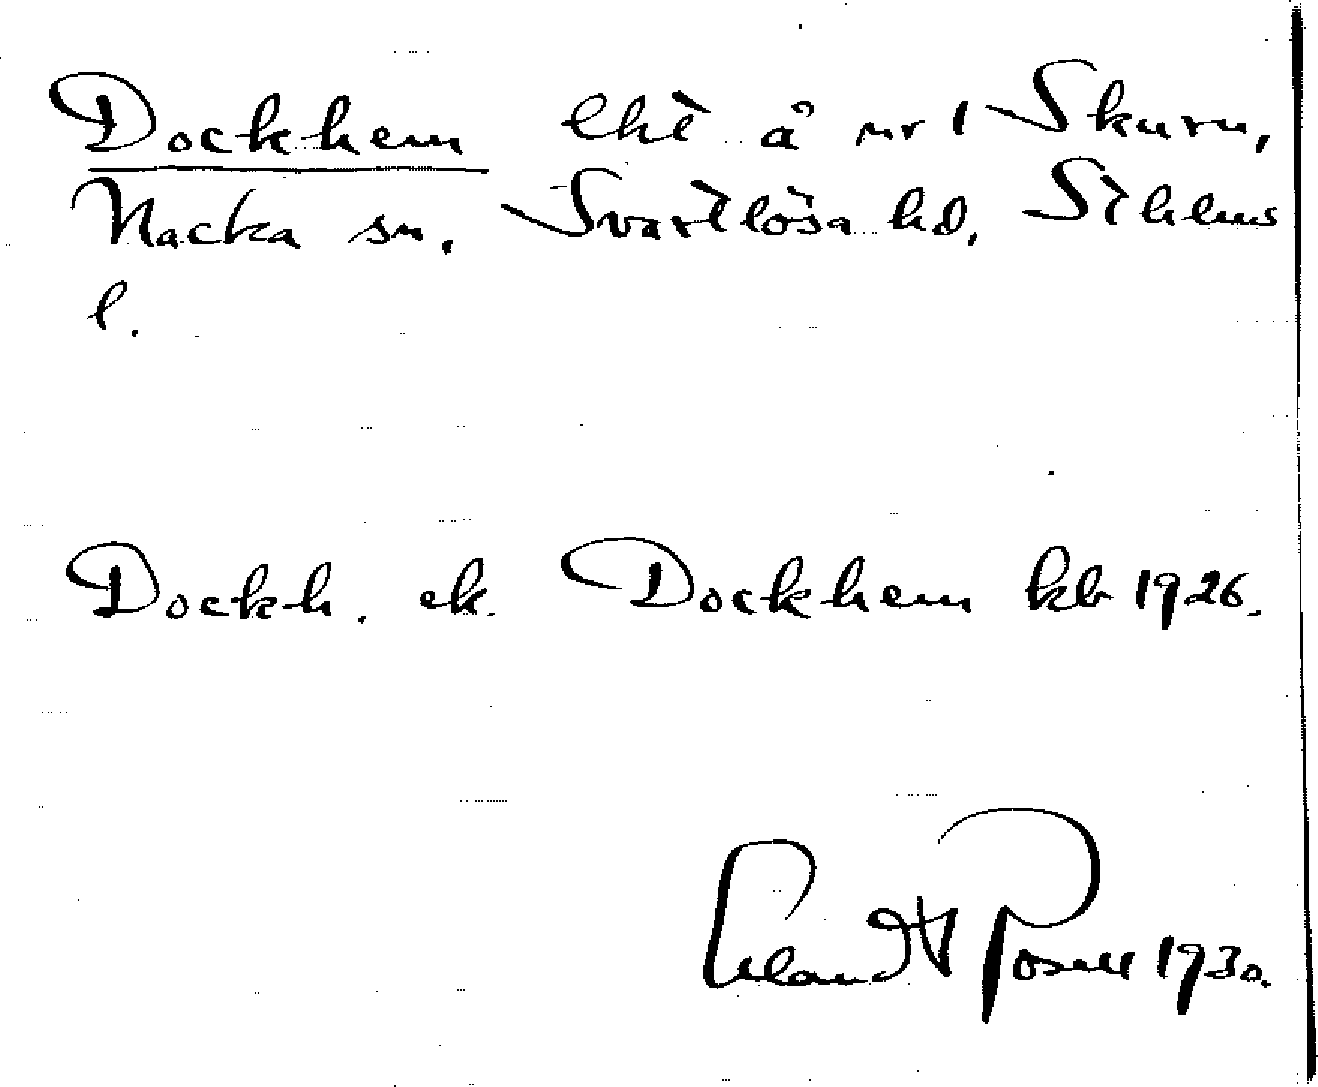 Dockhem lht å nr 1 Skuru,
Nacka sn. Svartlösa hd, Sthlms
l.
Dockh. ek. Dockhem kb 1926.
Erland Rosell 1930.